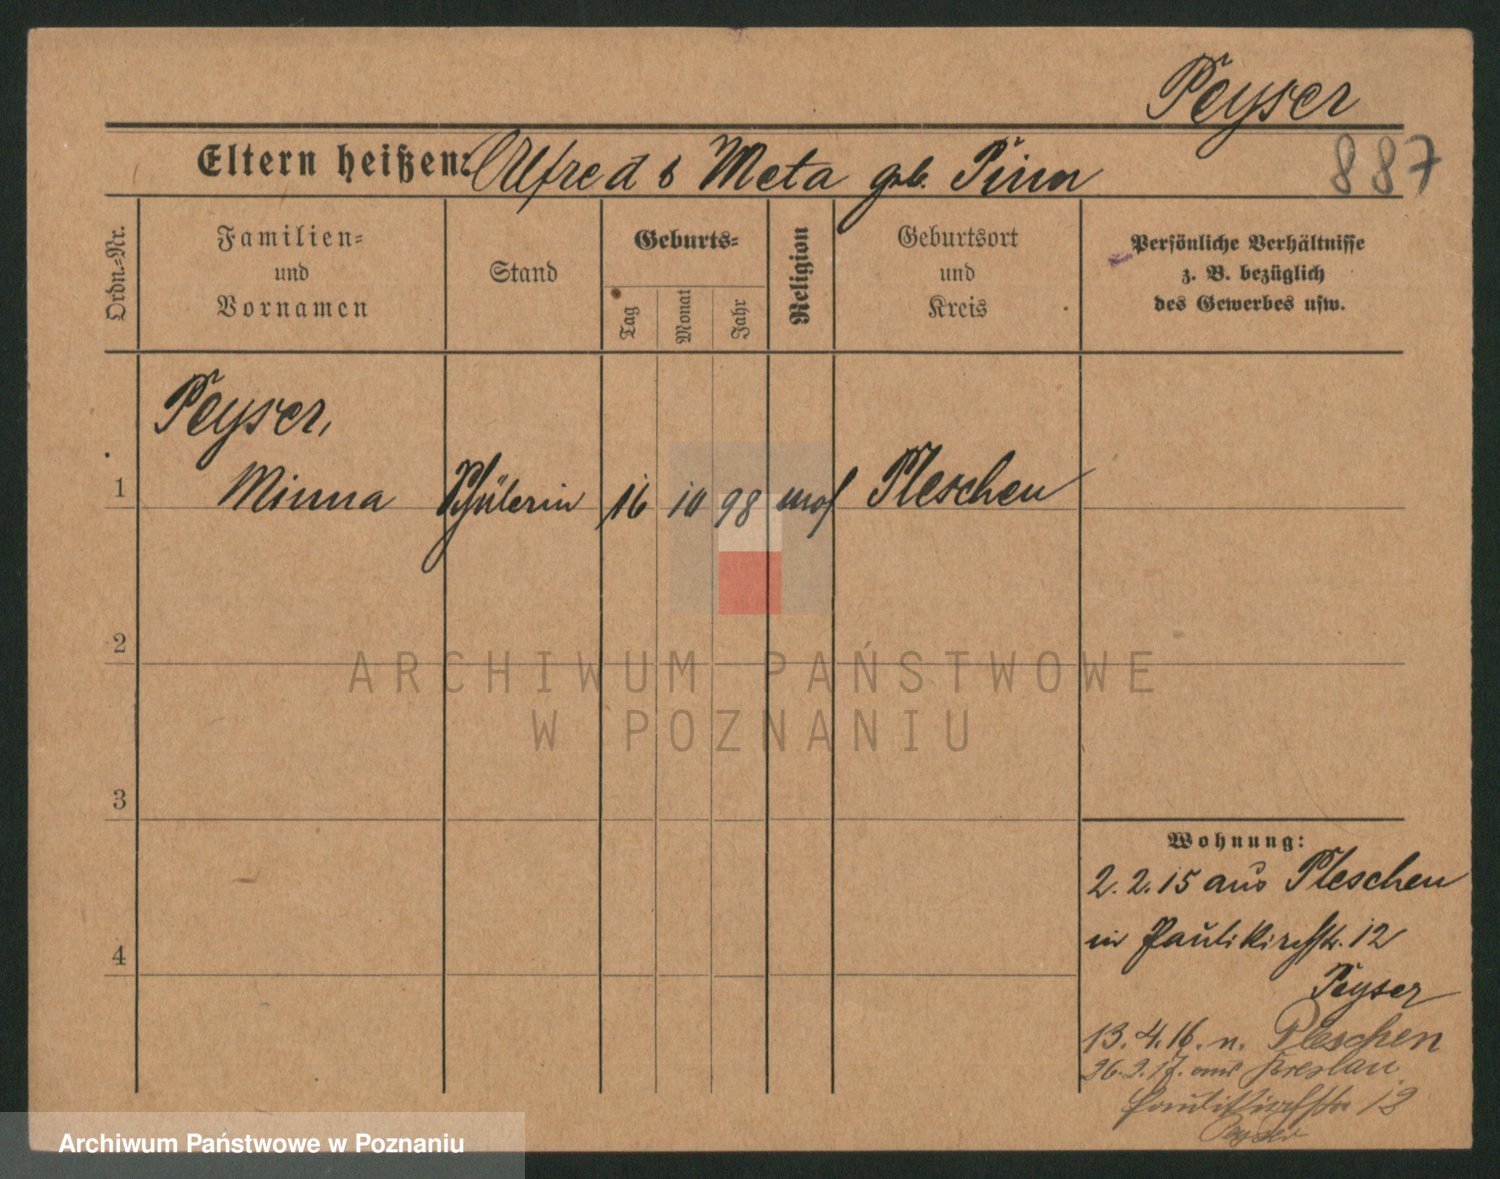 Peyser
887
Eltern heißen: Alfred & Meta geb.
Ordn.-Nr.
Familien-
und
Vornamen
Stand
Geburts-
Tag
Monat
Jahr
Religion
Geburtsort
und
Kreis
Persönliche Verhältnisse
z. B. bezüglich
des Gewerbes usw.
Peyser,
1 Minna Schülerin 16 10 98 mos Pleschen
2
3
4
Wohnung:
2.2.15 aus Pleschen
in Paulikirchstr. 12
Peyser
13.4.16. n. Pleschen
26.2.17. aus Breslau
Paulikirchstr 12
Peyser
ARCHIWUM PAŃSTWOWE
W POZNANIU
Archiwum Państwowe w Poznaniu